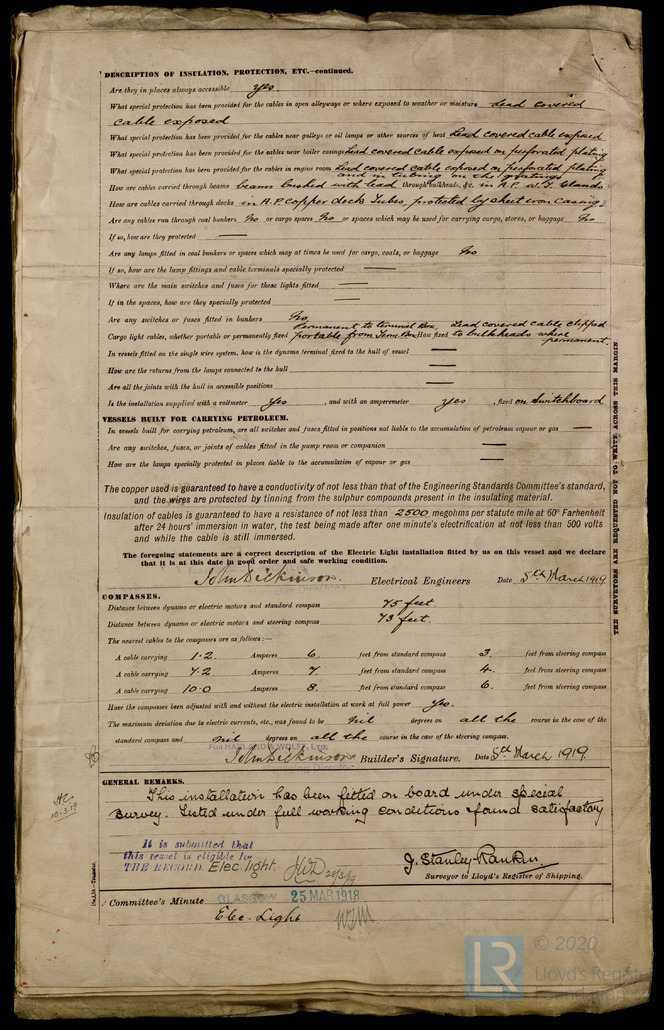 DESCRIPTION OF INSULATION, PROTECTION, ETC.—continued.
Are they in places always accessible Yes.
What special protection has been provided for the cables in open alleyways or where exposed to weather or moisture Lead covered
cable exposed
What special protection has been provided for the cables near galleys or oil lamps or other sources of heat Lead covered cable exposed
What special protection has been provided for the cables near boiler casings Lead covered cable exposed on perforated plating
What special protection has been provided for the cables in engine room Lead covered cable exposed on perforated plating
and in tubing on the gratings
How are cables carried through beams beams bushed with lead through bulkheads, &c. in A.P. W.T. Glands
How are cables carried through decks in A.P. Copper deck Tubes, protected by sheet iron casing
Are any cables run through coal bunkers No or cargo spaces No or spaces which may be used for carrying cargo, stores, or baggage No
If so, how are they protected —
Are any lamps fitted in coal bunkers or spaces which may at times be used for cargo, coals, or baggage No
If so, how are the lamp fittings and cable terminals specially protected —
Where are the main switches and fuses for these lights fitted —
If in the spaces, how are they specially protected —
Are any switches or fuses fitted in bunkers No.
Permanent to terminal Box, Lead covered cable clipped
Cargo light cables, whether portable or permanently fixed portable from Term. Box How fixed to bulkheads where
permanent.
In vessels fitted on the single wire system, how is the dynamo terminal fixed to the hull of vessel —
How are the returns from the lamps connected to the hull —
Are all the joints with the hull in accessible positions —
Is the installation supplied with a voltmeter Yes , and with an amperemeter yes , fixed on Switchboard
VESSELS BUILT FOR CARRYING PETROLEUM.
In vessels built for carrying petroleum, are all switches and fuses fitted in positions not liable to the accumulation of petroleum vapour or gas —
Are any switches, fuses, or joints of cables fitted in the pump room or companion —
How are the lamps specially protected in places liable to the accumulation of vapour or gas —
The copper used is guaranteed to have a conductivity of not less than that of the Engineering Standards Committee's standard,
and the wires are protected by tinning from the sulphur compounds present in the insulating material.
Insulation of cables is guaranteed to have a resistance of not less than 2500 megohms per statute mile at 60° Farhenheit
after 24 hours' immersion in water, the test being made after one minute's electrification at not less than 500 volts
and while the cable is still immersed.
The foregoing statements are a correct description of the Electric Light installation fitted by us on this vessel and we declare
that it is at this date in good order and safe working condition.
John Dickinson. Electrical Engineers Date 5th March 1919
COMPASSES.
Distance between dynamo or electric motors and standard compass 75 feet.
Distance between dynamo or electric motors and steering compass 73 feet.
The nearest cables to the compasses are as follows:—
A cable carrying 1.2. Amperes 6. feet from standard compass 3. feet from steering compass
A cable carrying 7.2 Amperes 7. feet from standard compass 4. feet from steering compass
A cable carrying 10.0 Amperes 8. feet from standard compass 6. feet from steering compass
Have the compasses been adjusted with and without the electric installation at work at full power Yes.
The maximum deviation due to electric currents, etc., was found to be nil degrees on all the course in the case of the
standard compass and nil degrees on all the course in the case of the steering compass.
For HARLAND & WOLFF, Ltd.
John Dickinson Builder's Signature. Date 5th March 1919.
GENERAL REMARKS.
This installation has been fitted on board under special
survey. Tested under full working conditions & found satisfactory
HC
10.3.19
It is submitted that
this vessel is eligible for
THE RECORD. Elec. light. 20/3/19
J. Stanley Rankin
Surveyor to Lloyd's Register of Shipping.
Committee's Minute GLASGOW 25 MAR 1918
Elec. Light
THE SURVEYORS ARE REQUESTED NOT TO WRITE ACROSS THIS MARGIN
LR
© 2020
Lloyd's Register
Foundation